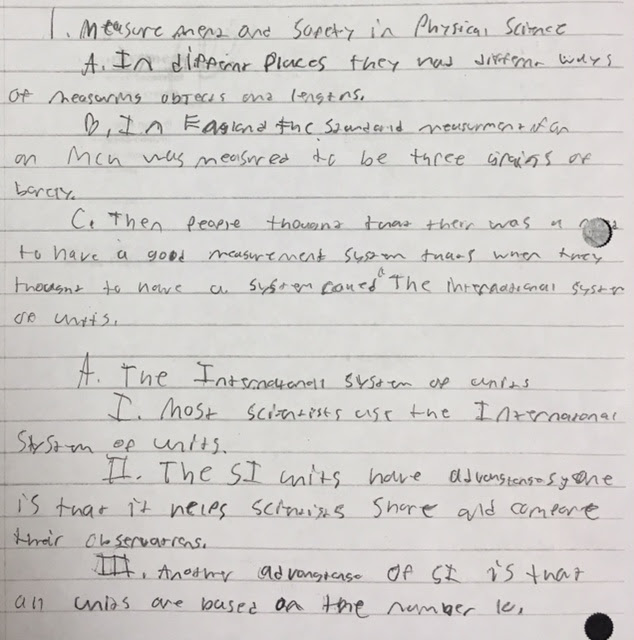 1. Measurement and Safety in Physical Science
A. In different places they had different ways
of measuring objects and lengths.
B, In England the standard measurement of an
an inch was measured to be three grains of
barely.
C. Then people thought that there was a
to have a good measurement system thats when they
thought to have a system called "The international system
of units.
A. The International system of units
I. Most scientists use the International
System of units.
II. The SI units have advangtages, one
is that it helps scientists share and compare
their observations.
III. Another advangtage of SI is that
all units are based on the number 10.